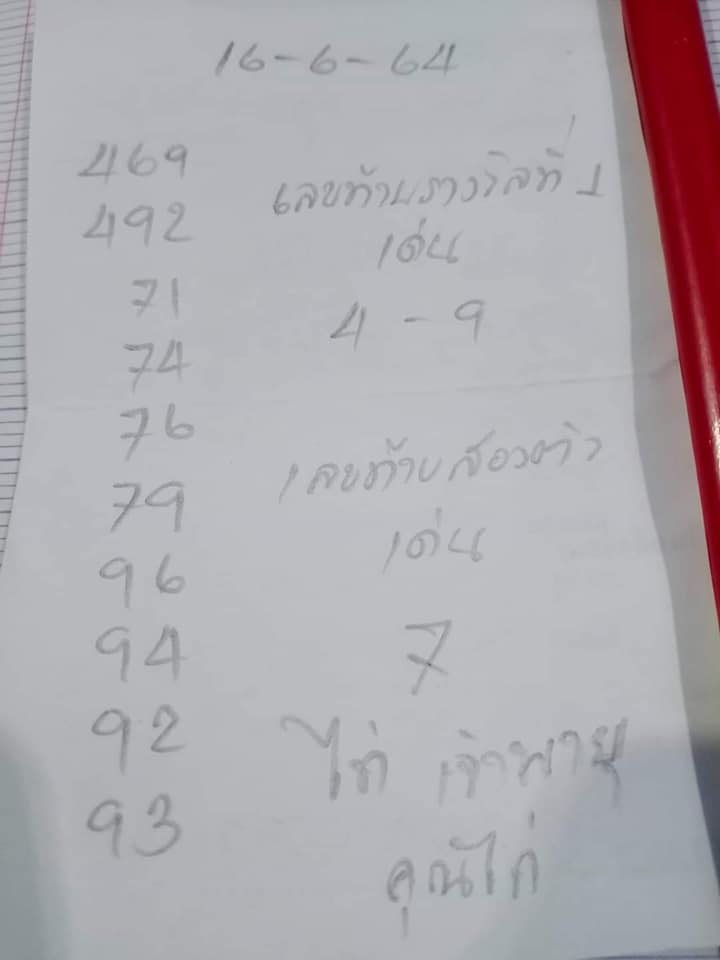 16-6-64
469
492
71
74
76
79
96
94
92
93
เลขท้ายรางวัลที่ 1
เด่น
4 - 9
เลขท้ายสองตัว
เด่น
7
ไก่ เจ้าพายุ
คุณไก่